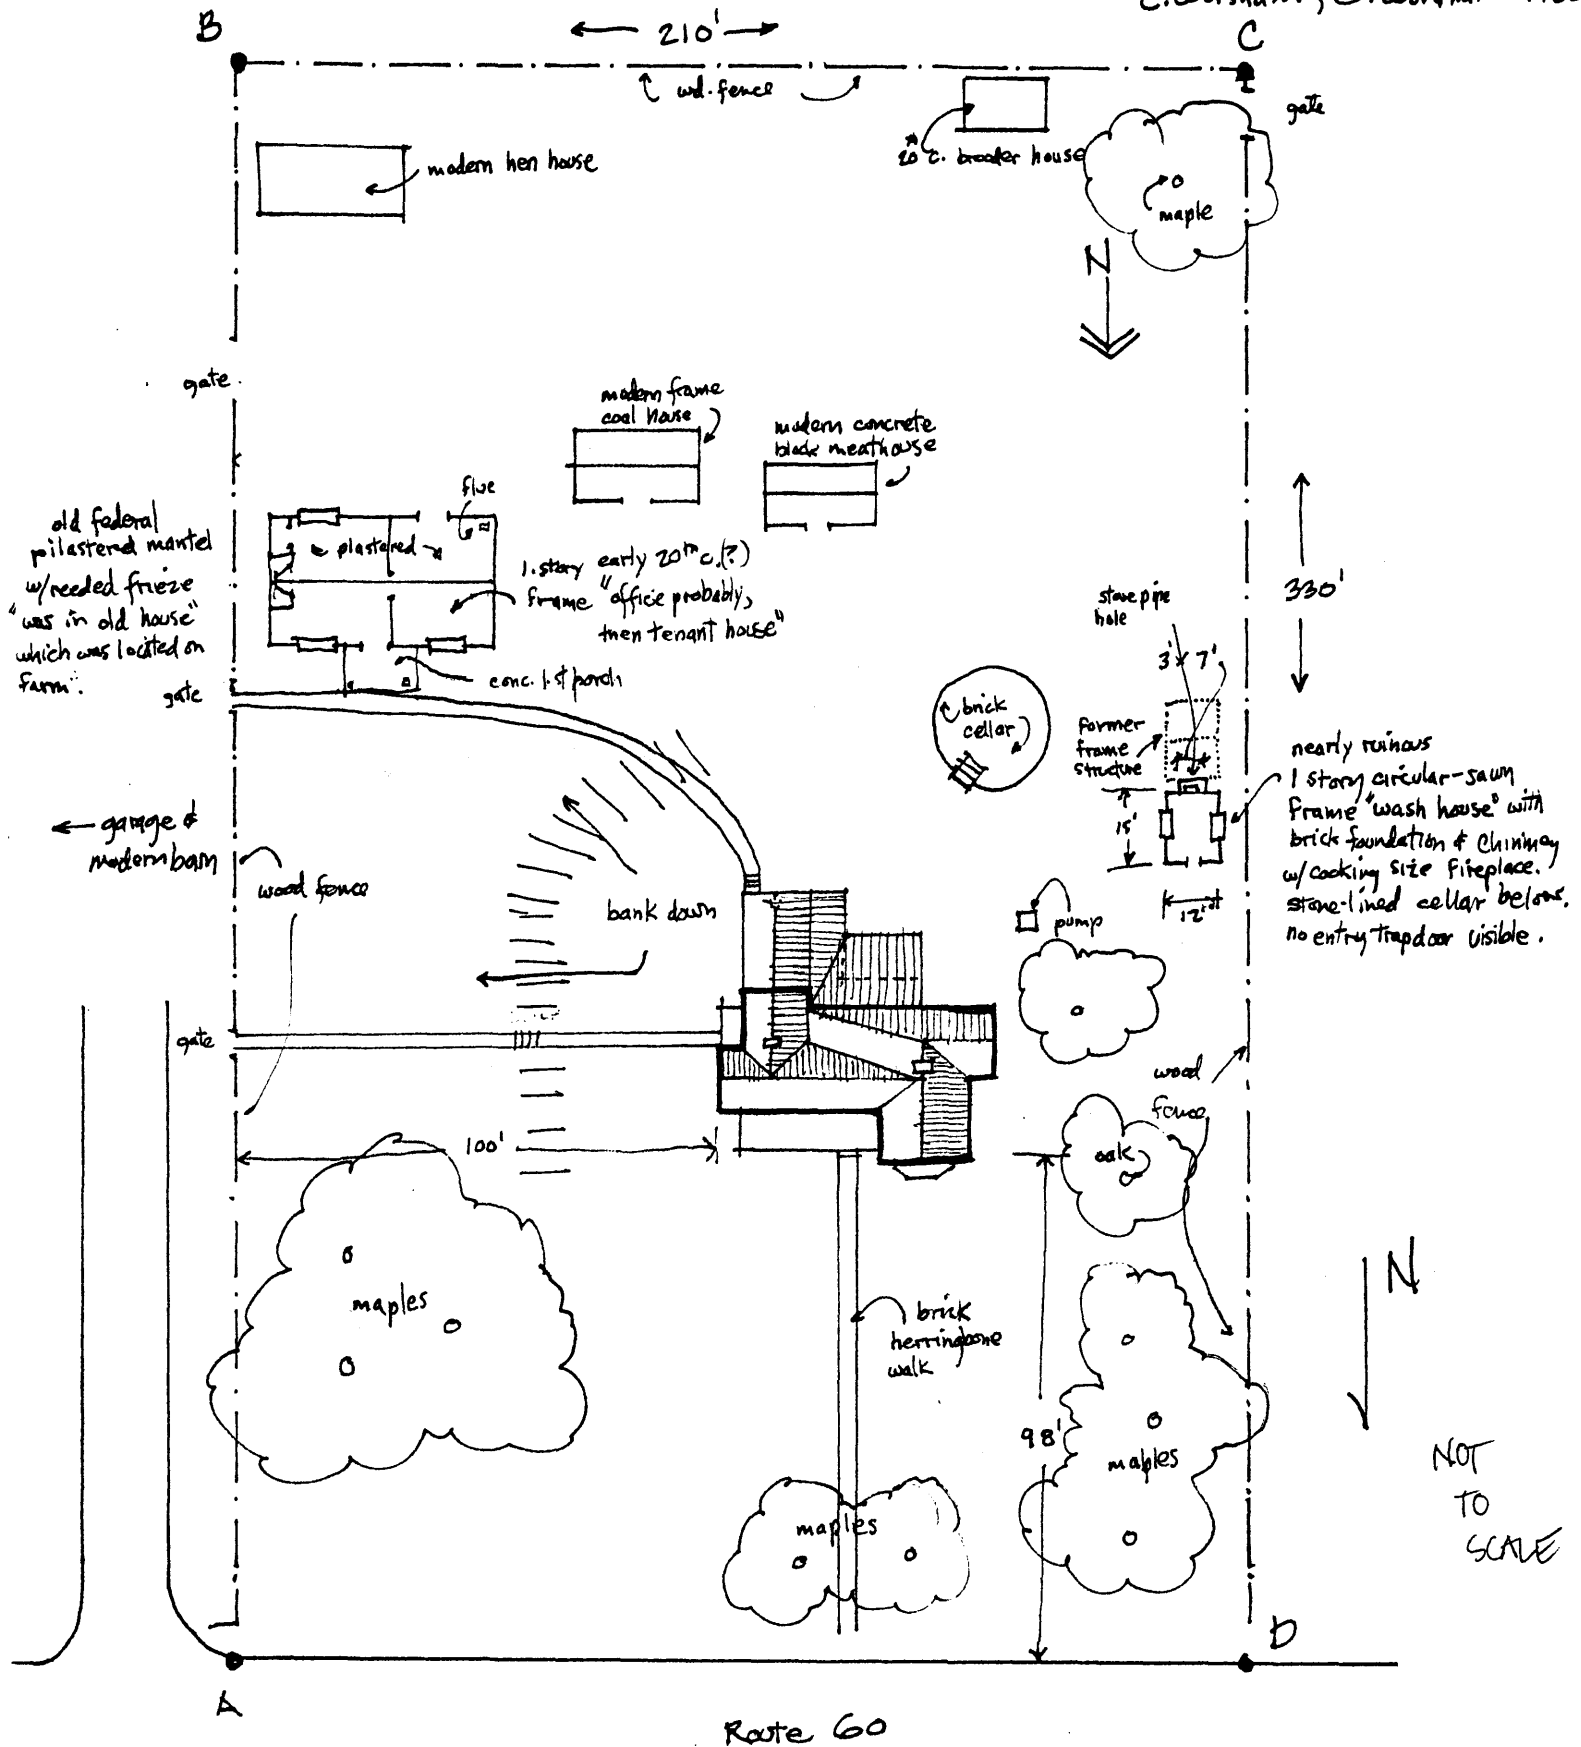 B
← 210' →
C
wd. fence
gate
20th c. brooder house
modern hen house
maple
N
gate
modern frame
coal house
modern concrete
block meathouse
flue
old federal
pilastered mantel
w/reeded frieze
"was in old house"
which was located on
farm".
plastered
1. story early 20th c.(?)
frame "office probably,
then tenant house"
conc. 1st porch
gate
330'
stovepipe
hole
3' x 7'
brick
cellar
former
frame
structure
15'
12'
nearly ruinous
1 story circular-sawn
frame "wash house" with
brick foundation & chimney
w/cooking size fireplace.
stone-lined cellar below.
no entry trapdoor visible.
← garage &
modern barn
wood fence
bank down
pump
gate
wood
fence
100'
oak
maples
brick
herringbone
walk
98'
maples
maples
N
NOT
TO
SCALE
A
D
Route 60